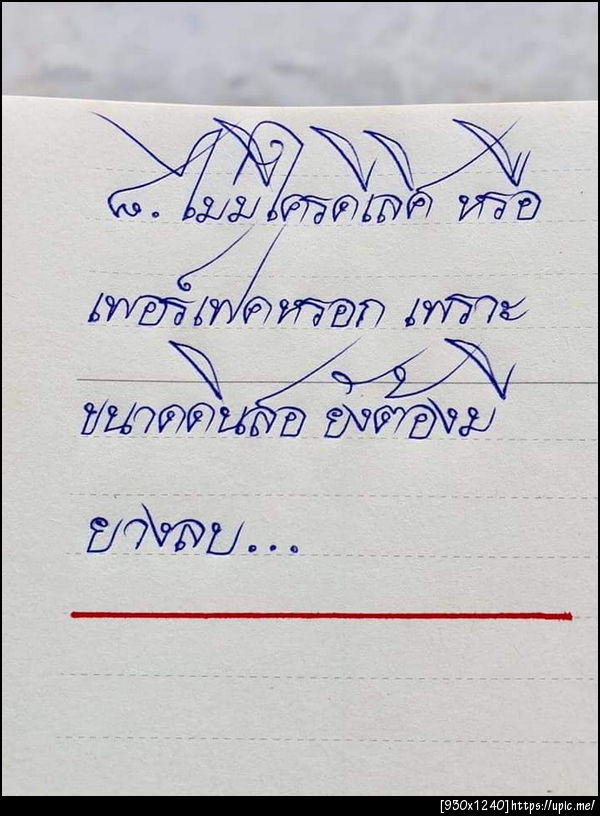 ๘. ไม่มีใครดีเลิศ หรือ
เพอร์เฟคหรอก เพราะ
ขนาดดินสอ ยังต้องมี
ยางลบ...
[930x1240]https://upic.me/